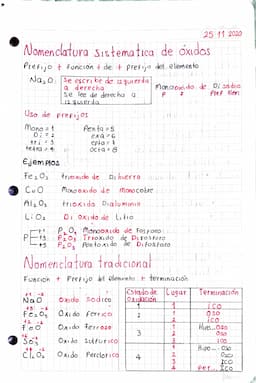 25 11 2020
Nomenclatura Sistematica de óxidos
Prefijo + función + de + prefijo del elemento
Na₂O
Se escribe de izquierda
a derecha
Se lee de derecha a
izquierda
Monoxido de Di sodio
Uso de prefijos
Mono = 1 Penta = 5
Di = 2 exa = 6
tri = 3 epta = 7
tetra = 4 octa = 8
Ejemplos
Fe₂O₃ trioxido de Dihierro
CuO Monoxido de monocobre
Al₂O₃ trioxido Dialuminio
LiO₂ Di oxido de Litio
P +1 P₂O₁ Monoxido de fosforo
+3 P₂O₃ Trioxido de Difosforo
+5 P₂O₅ Pentoxido de Difosforo
Nomenclatura tradicional
Función + Prefijo del elemento + terminación
NaO Oxido Sodico
Fe₂O₃ Oxido ferrico
feO Oxido ferroso
SO₃ Oxido Sulfurico
Cl₂O₇ Oxido Perclorico
Estado de Oxidación Lugar Terminación
1 1 ICO
2 1 OSO
2 ICO
3 1 Hipo...OSO
2 OSO
3 ICO
4 1 Hipo...OSO
2 OSO
3 ICO
4 Per...ICO